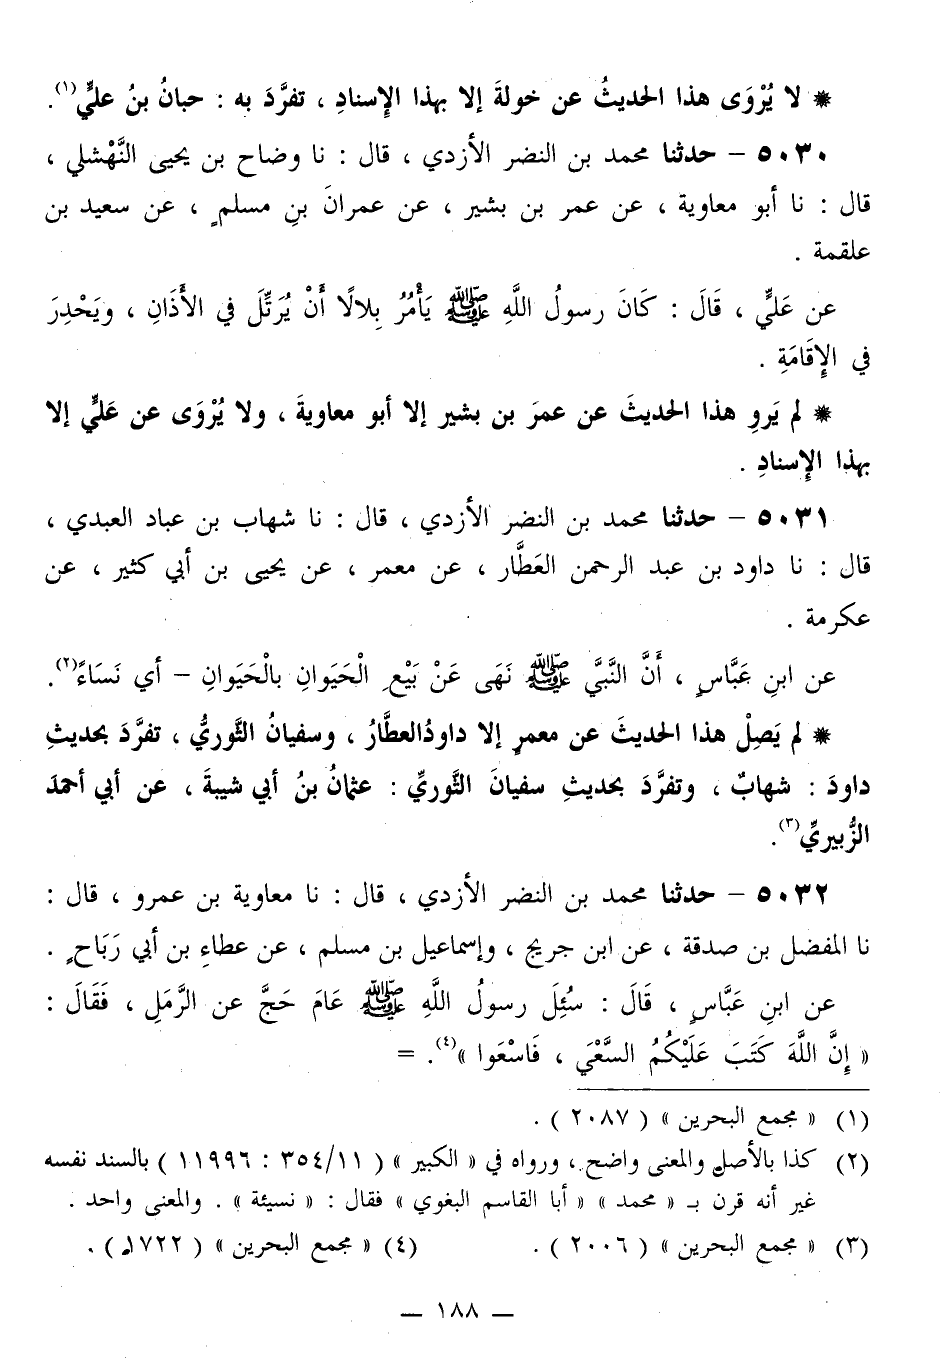 * لا يُرْوَى هذا الحديثُ عن خولةَ إلا بهذا الإِسنادِ ، تفرَّدَ به : حبانُ بنُ عليٍّ(١).
٥٠٣٠ – حدثنا محمد بن النضر الأزدي ، قال : نا وضاح بن يحيى النَّهْشلي ،
قال : نا أبو معاوية ، عن عمر بن بشير ، عن عمرانَ بنِ مسلمٍ ، عن سعيد بن
علقمة .
عن عَليٍّ ، قَالَ : كَانَ رسولُ اللَّهِ ﷺ يَأْمُرُ بِلالًا أَنْ يُرَتِّلَ في الأَذَانِ ، ويَحْدِرَ
في الإِقَامَةِ .
* لم يَروِ هذا الحديثَ عن عمرَ بن بشير إلا أبو معاويةَ ، ولا يُرْوَى عن عَليٍّ إلا
بهذا الإِسنادِ .
٥٠٣١ – حدثنا محمد بن النضر الأزدي ، قال : نا شهاب بن عباد العبدي ،
قال : نا داود بن عبد الرحمن العَطَّار ، عن معمر ، عن يحيى بن أبي كثير ، عن
عكرمة .
عن ابنِ عَبَّاسٍ ، أَنَّ النَّبيَّ ﷺ نَهَى عَنْ بَيْعِ الْحَيَوانِ بالْحَيَوانِ – أي نَسَاءً(٢).
* لم يَصِلْ هذا الحديثَ عن معمرٍ إلا داودُ العطَّارُ ، وسفيانُ الثَّوريُّ ، تفرَّدَ بحديثِ
داودَ : شهابٌ ، وتفرَّدَ بحديثِ سفيانَ الثَّوريِّ : عثمانُ بنُ أبي شيبةَ ، عن أبي أحمدَ
الزُّبيريِّ(٣).
٥٠٣٢ – حدثنا محمد بن النضر الأزدي ، قال : نا معاوية بن عمرو ، قال :
نا المفضل بن صدقة ، عن ابن جريج ، وإسماعيل بن مسلم ، عن عطاءِ بن أبي رَبَاحٍ .
عن ابنِ عَبَّاسٍ ، قَالَ : سُئِلَ رسولُ اللَّهِ ﷺ عَامَ حَجَّ عن الرَّمَلِ ، فَقَالَ :
« إِنَّ اللَّهَ كَتَبَ عَلَيْكُمُ السَّعْيَ ، فَاسْعَوا »(٤). =
(١) « مجمع البحرين » ( ٢٠٨٧ ) .
(٢) كذا بالأصل والمعنى واضح ، ورواه في « الكبير » ( ٣٥٤/١١ : ١١٩٩٦ ) بالسند نفسه
غير أنه قرن بـ « محمد » « أبا القاسم البغوي » فقال : « نسيئة » . والمعنى واحد .
(٣) « مجمع البحرين » ( ٢٠٠٦ ) . (٤) « مجمع البحرين » ( ١٧٢٢ ) .
— ١٨٨ —